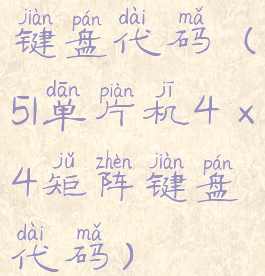 jiàn pán dài mǎ
键盘代码（
dān piàn jī
51单片机4×
jǔ zhèn jiàn pán
4矩阵键盘
dài mǎ
代码）